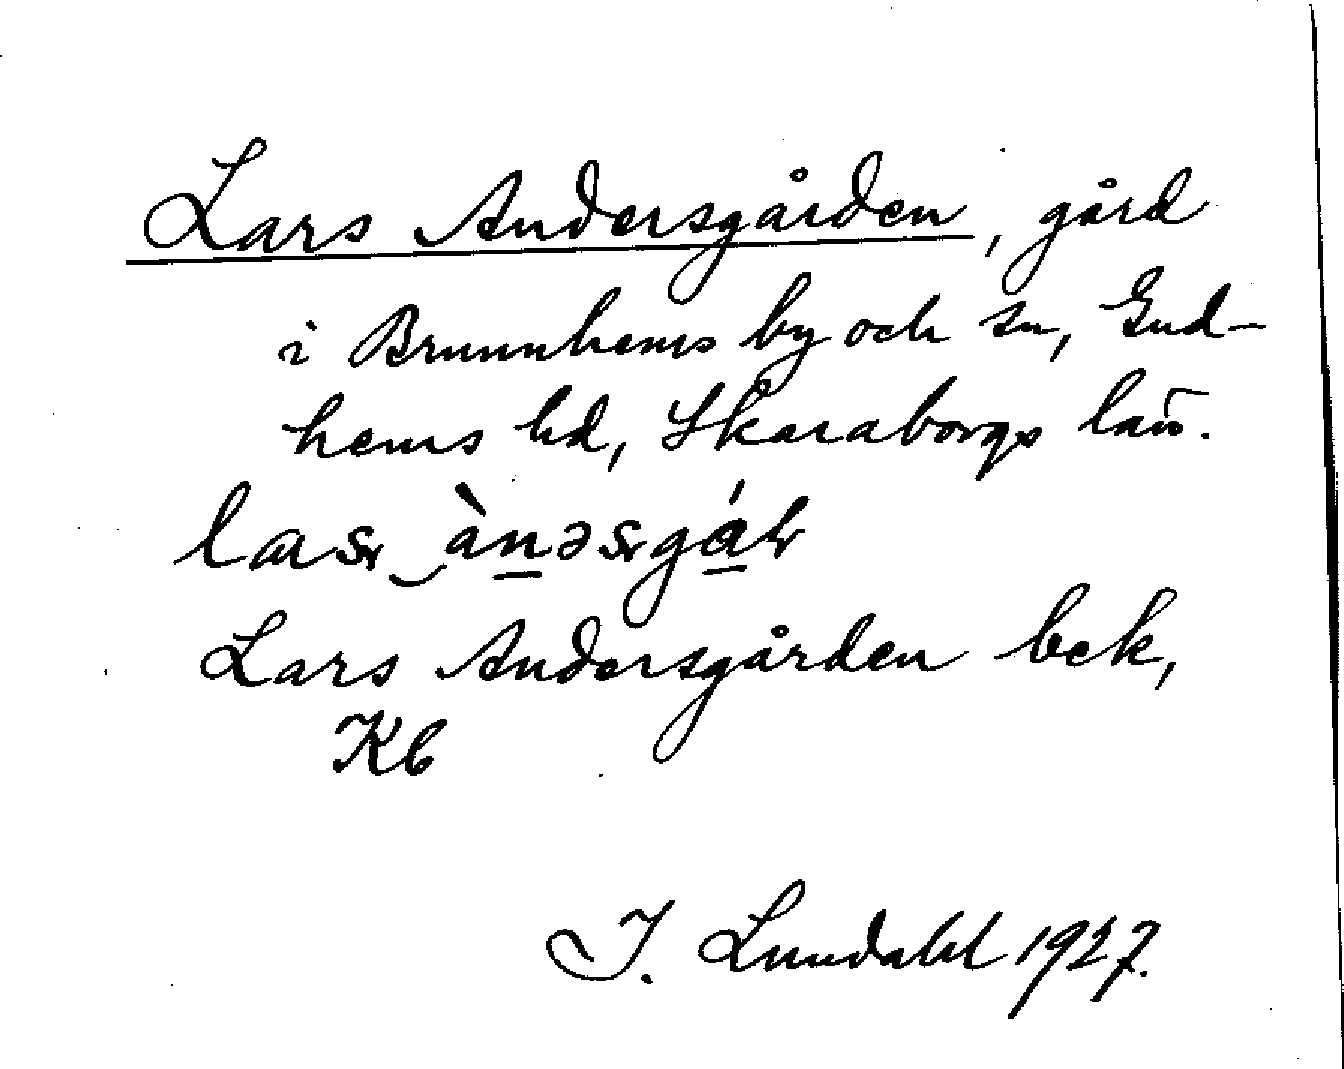 Lars Andersgården, gård
i Brunnhems by och sn, Gud-
hems hd, Skaraborgs län.
Lars Andersgården bek,
Kb
I. Lundahl 1927.